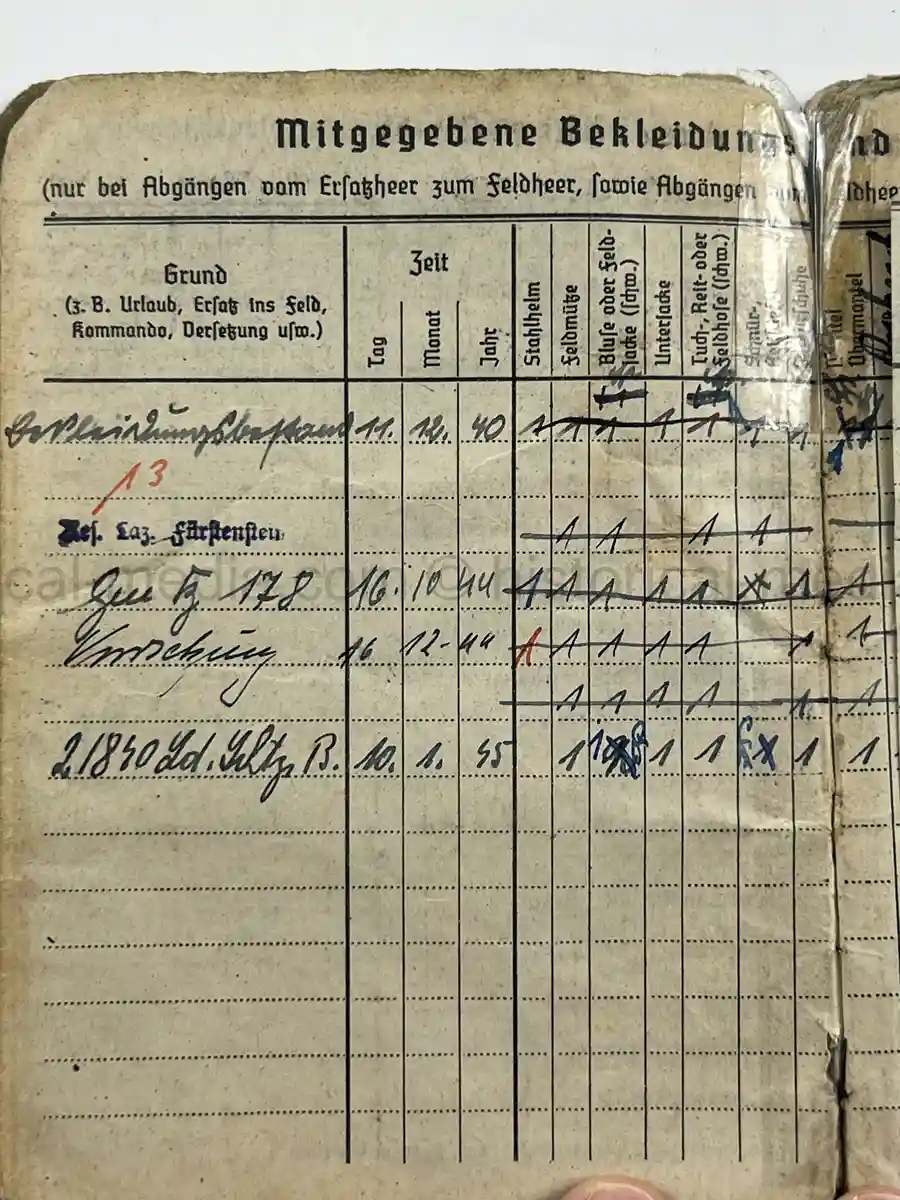 Mitgegebene Bekleidungs nd
(nur bei Abgängen vom Ersatzheer zum Feldheer, sowie Abgängen vom Feldheer
Grund
(z. B. Urlaub, Ersatz ins Feld,
Kommando, Versetzung usw.)
Zeit
Tag
Monat
Jahr
Stahlhelm
Feldmütze
Bluse oder Feld-
jacke (schw.)
Unterjacke
Tuch-, Reit- oder
Feldhose (schw.)
Schnür-,
Mantel
Übermantel
Bekleidungsbestand 11. 12. 40 1 1 1 1 1 1
13
Res. Laz. Fürstenstein 1 1 1 1
Gen 178 16. 10 44 1 1 1 1 1 1 1
Versetzung 16 12- 44 1 1 1 1 1 1 1
1 1 1 1 1 1
2./840 Ld. Schtz. B. 10. 1. 45 1 1 1 1 1 1